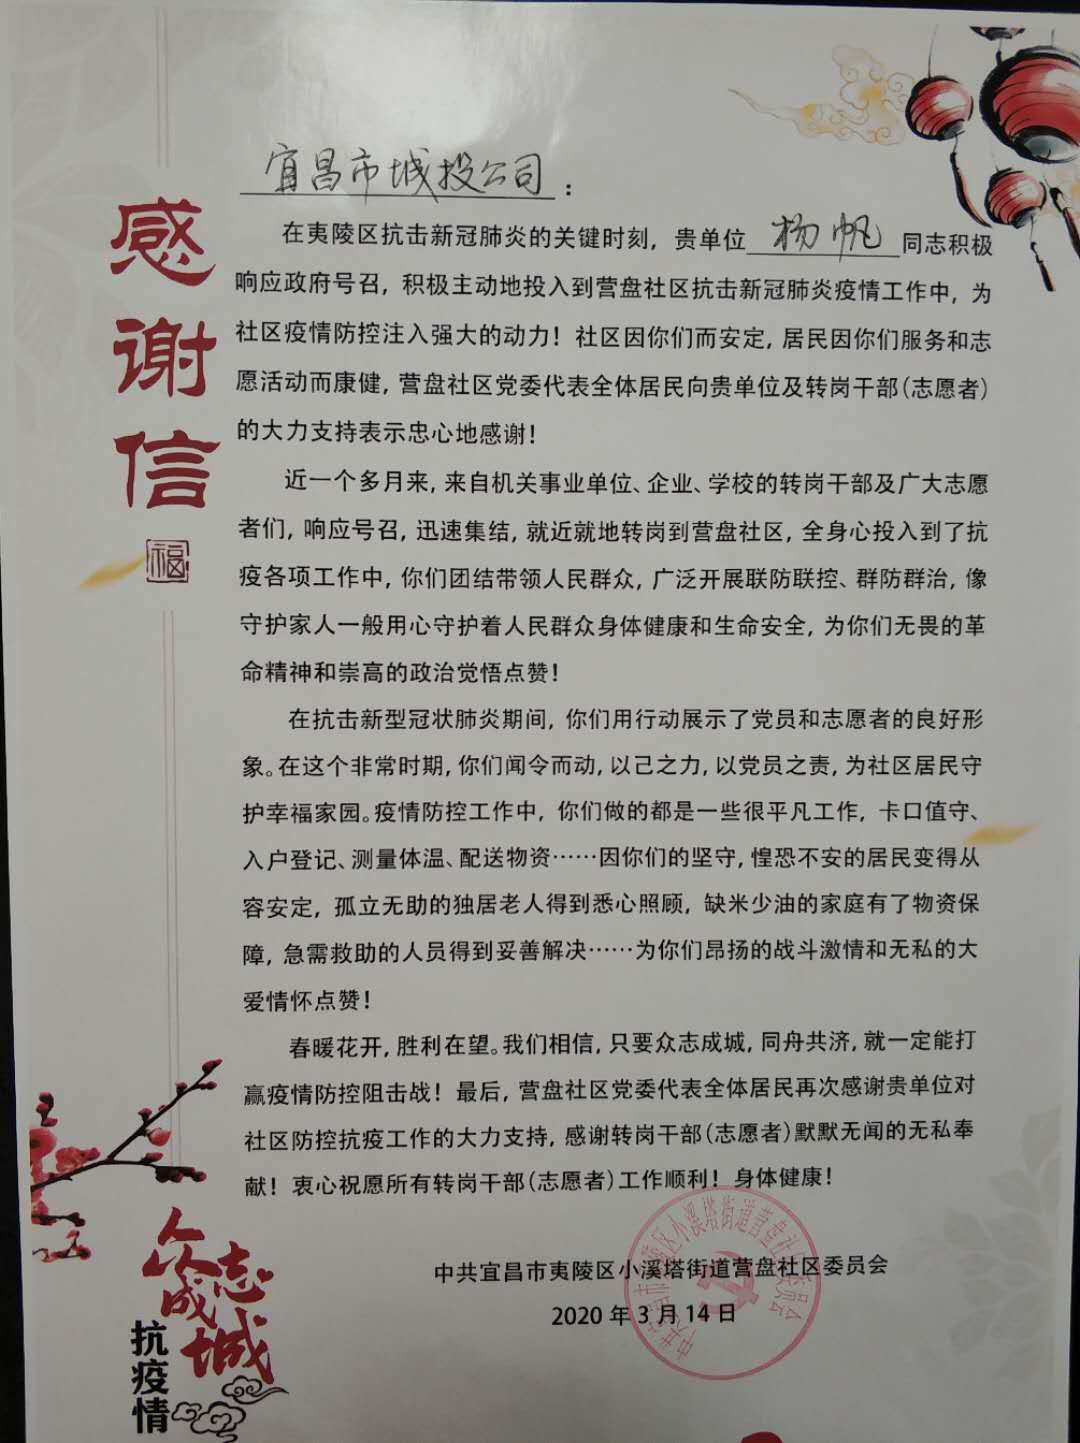 感谢信
福
宜昌市城投公司：
在夷陵区抗击新冠肺炎的关键时刻，贵单位杨帆同志积极
响应政府号召，积极主动地投入到营盘社区抗击新冠肺炎疫情工作中，为
社区疫情防控注入强大的动力！社区因你们而安定，居民因你们服务和志
愿活动而康健，营盘社区党委代表全体居民向贵单位及转岗干部（志愿者）
的大力支持表示忠心地感谢！
近一个多月来，来自机关事业单位、企业、学校的转岗干部及广大志愿
者们，响应号召，迅速集结，就近就地转岗到营盘社区，全身心投入到了抗
疫各项工作中，你们团结带领人民群众，广泛开展联防联控、群防群治，像
守护家人一般用心守护着人民群众身体健康和生命安全，为你们无畏的革
命精神和崇高的政治觉悟点赞！
在抗击新型冠状肺炎期间，你们用行动展示了党员和志愿者的良好形
象。在这个非常时期，你们闻令而动，以己之力，以党员之责，为社区居民守
护幸福家园。疫情防控工作中，你们做的都是一些很平凡工作，卡口值守、
入户登记、测量体温、配送物资……因你们的坚守，惶恐不安的居民变得从
容安定，孤立无助的独居老人得到悉心照顾，缺米少油的家庭有了物资保
障，急需救助的人员得到妥善解决……为你们昂扬的战斗激情和无私的大
爱情怀点赞！
春暖花开，胜利在望。我们相信，只要众志成城，同舟共济，就一定能打
赢疫情防控阻击战！最后，营盘社区党委代表全体居民再次感谢贵单位对
社区防控抗疫工作的大力支持，感谢转岗干部（志愿者）默默无闻的无私奉
献！衷心祝愿所有转岗干部（志愿者）工作顺利！身体健康！
中共宜昌市夷陵区小溪塔街道营盘社区委员会
2020年3月14日
中共宜昌市夷陵区小溪塔街道营盘社区委员会
众志成城
抗疫情